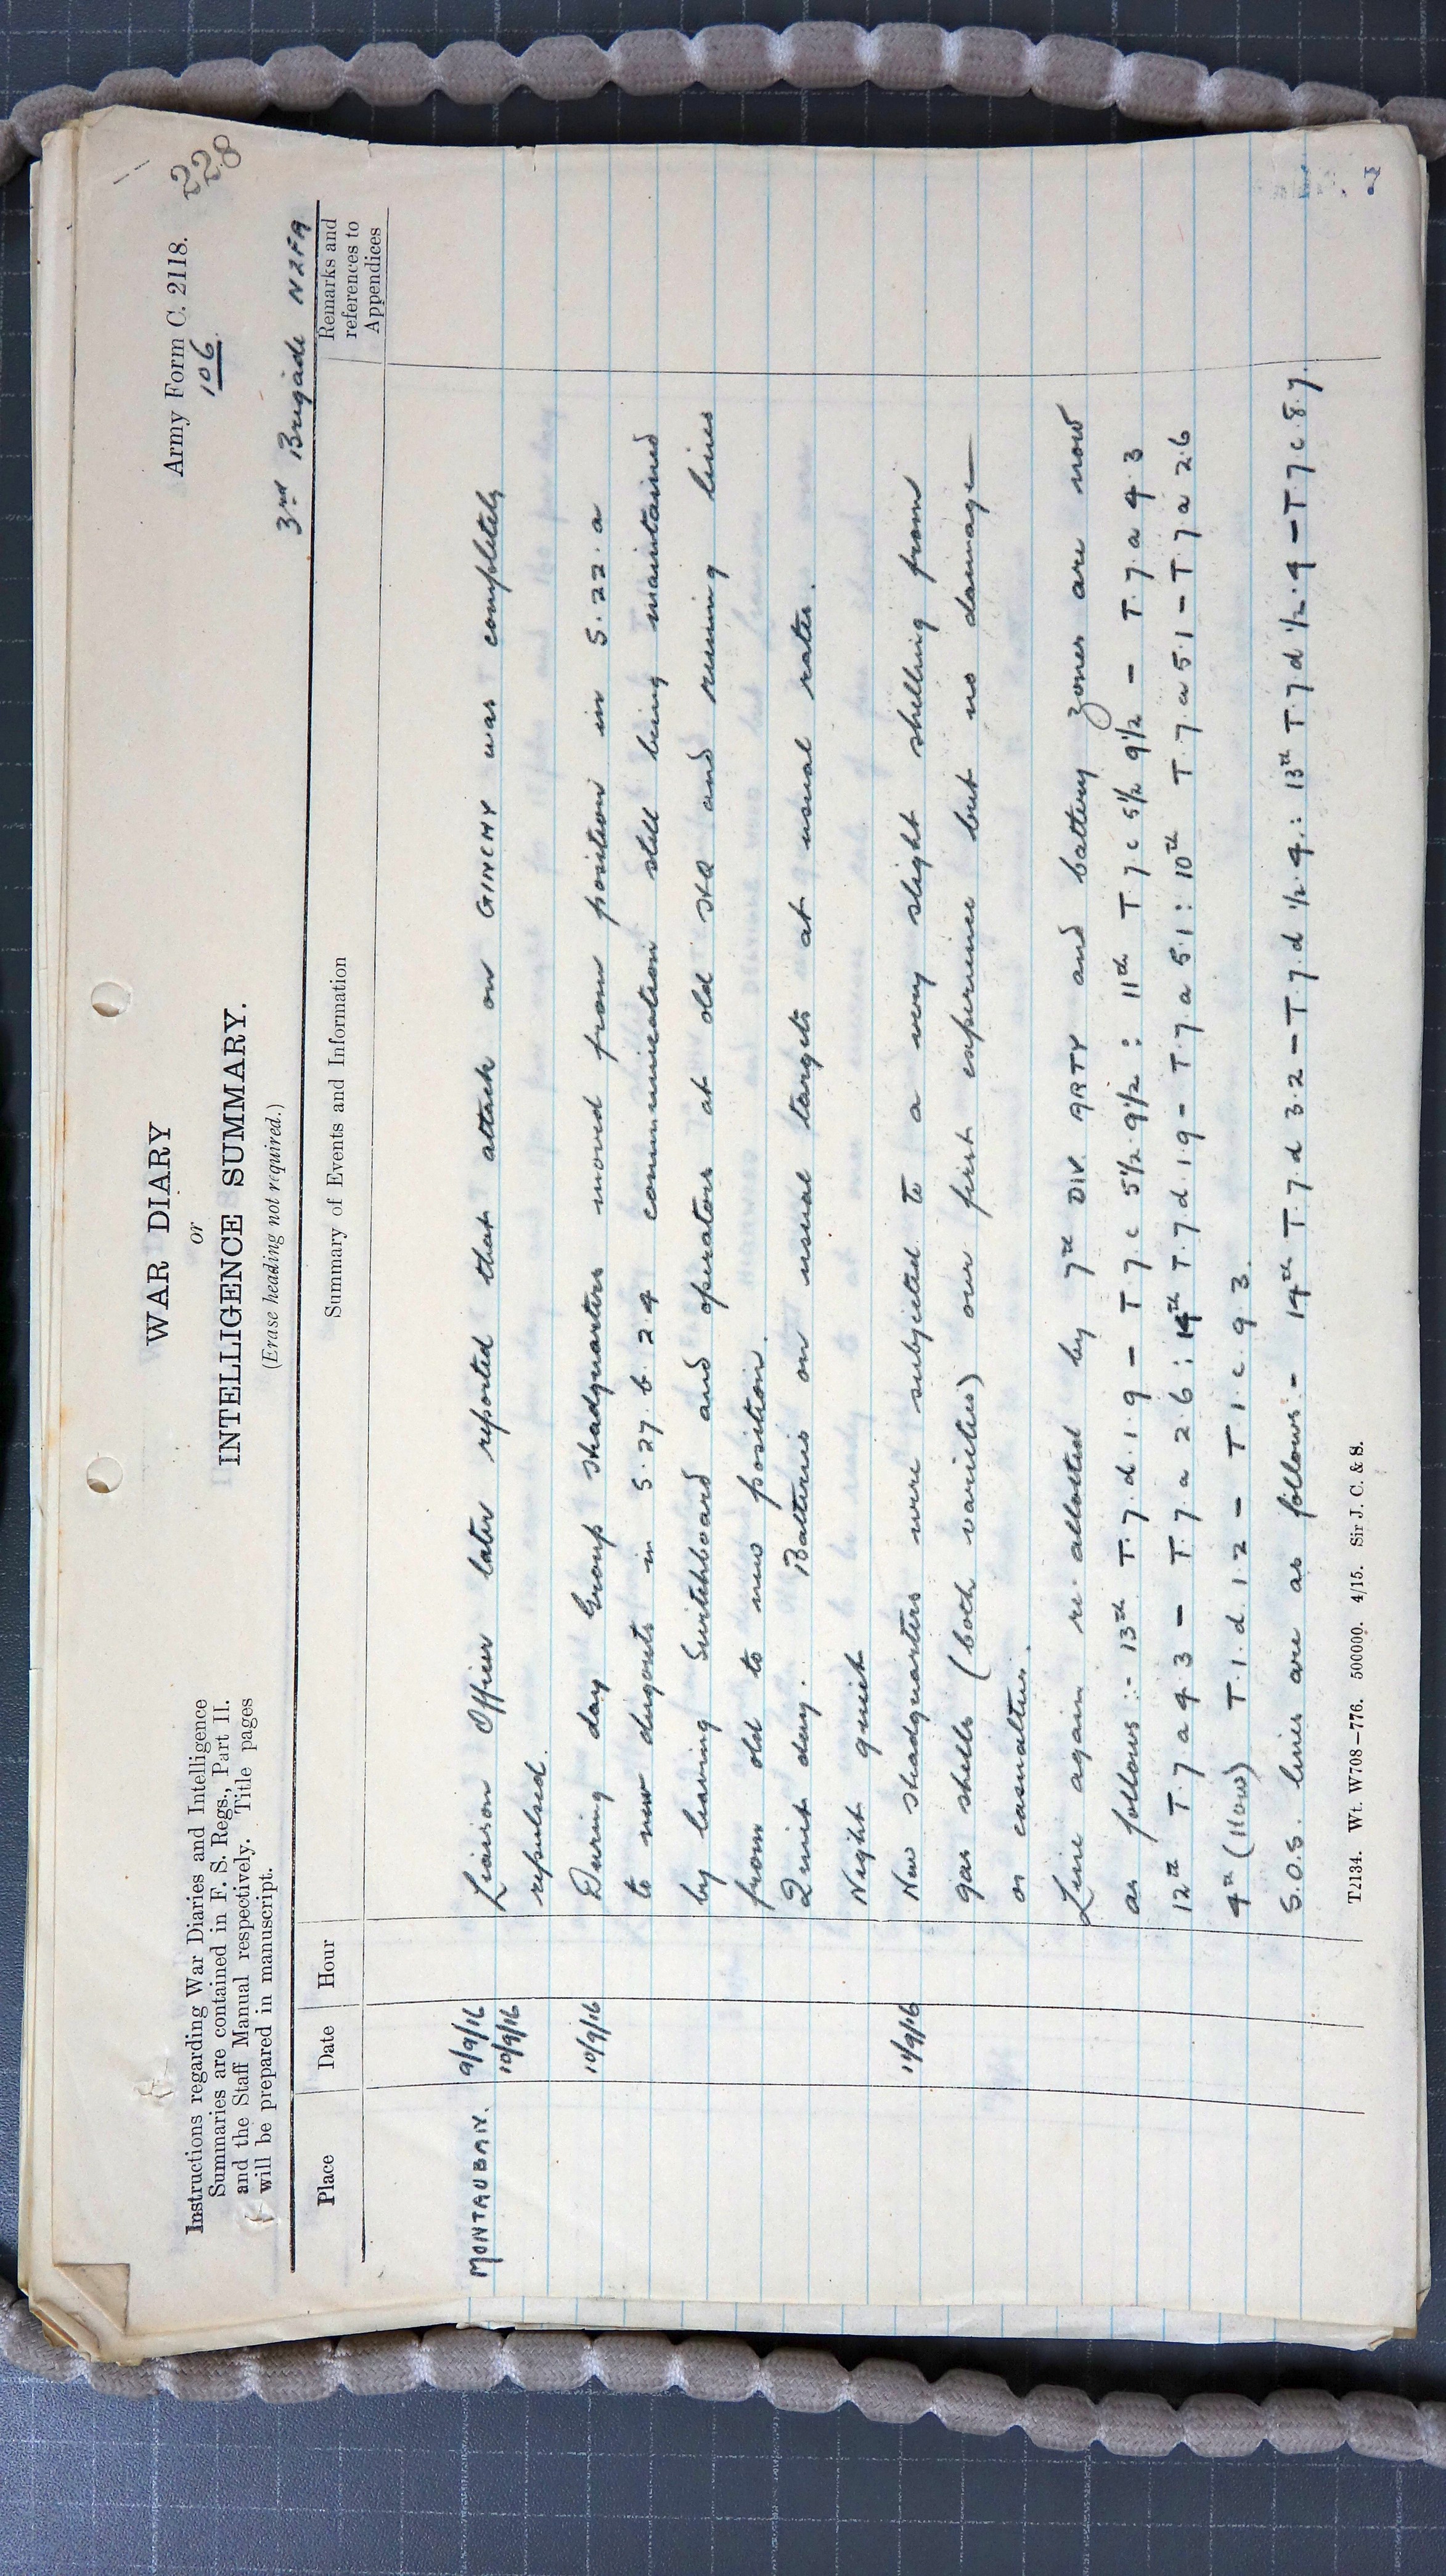 Army Form C. 2118.
228
106
WAR DIARY
or
INTELLIGENCE SUMMARY.
(Erase heading not required.)
3rd Brigade NZFA
Instructions regarding War Diaries and Intelligence
Summaries are contained in F. S. Regs., Part II.
and the Staff Manual respectively. Title pages
will be prepared in manuscript.
Place Date Hour Summary of Events and Information Remarks and references to Appendices
MONTAUBAN. 9/9/16 Liaison Officer later reported that attack on GINCHY was completely
10/9/16 repulsed.
10/9/16 During day Group Headquarters moved from position in S.22.a
to new dugouts in S.27.b.2.4 communication still being maintained
by leaving Switchboard and operators at old HQ and running lines
from old to new position.
Quiet day. Batteries on usual targets at usual rates.
Night quiet
11/9/16 New Headquarters were subjected to a very slight shelling from
gas shells (both varieties) our first experience but no damage
or casualties.
Line again re-allotted by 7th DIV ARTY and battery zones are now
as follows :- 13th T.7.d.1.9 - T.7.c 5½.9½ : 11th T.7.c 5½ 9½ - T.7.a 4.3
12th T.7.a 4.3 - T.7.a 2.6 : 14th T.7.d.1.9 - T.7.a 5.1 : 10th T.7.a 5.1 - T.7.a 2.6
4th (How) T.1.d.1.2 - T.1.c.9.3.
S.O.S. lines are as follows :- 14th T.7.d 3.2 - T.7.d ½.4 : 13th T.7.d ½.4 - T.7.c.8.7.
T2134. Wt. W708—776. 500000. 4/15. Sir J. C. & S.